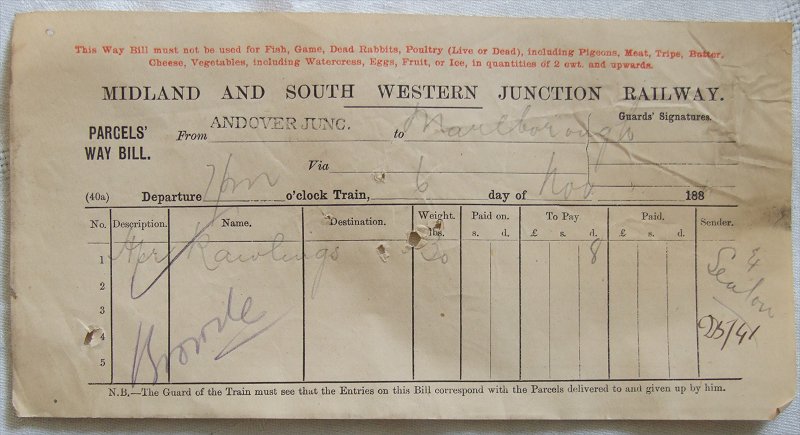 This Way Bill must not be used for Fish, Game, Dead Rabbits, Poultry (Live or Dead), including Pigeons, Meat, Tripe, Butter,
Cheese, Vegetables, including Watercress, Eggs, Fruit, or Ice, in quantities of 2 cwt. and upwards.
MIDLAND AND SOUTH WESTERN JUNCTION RAILWAY.
PARCELS' WAY BILL.
From ANDOVER JUNC. to Marlborough
Guards' Signatures.
Via
(40a) Departure 7pm o'clock Train, 6 day of Nov 188
No. Description. Name. Destination. Weight. lbs. Paid on. s. d. To Pay £ s. d. Paid. £ s. d. Sender.
1 Rawlings 20 8
2
3
4
5
Browne
N.B.—The Guard of the Train must see that the Entries on this Bill correspond with the Parcels delivered to and given up by him.